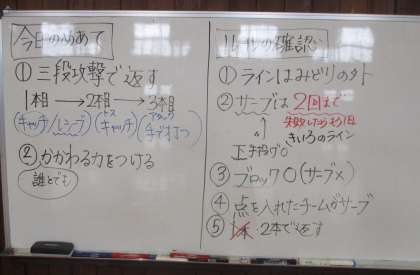 今日のめあて
① 三段攻撃で返す
1本目→2本目→3本目
(キャッチ/レシーブ) (トス キャッチ) (アタック 手で打つ)
② かかわる力をつける
誰とでも
ルールの確認
① ラインはみどりの外
② サーブは2回まで
失敗したらもう1回
きいろのライン
③ ブロック○(サーブ×)
④ 点を入れたチームがサーブ
⑤ 2本で返す